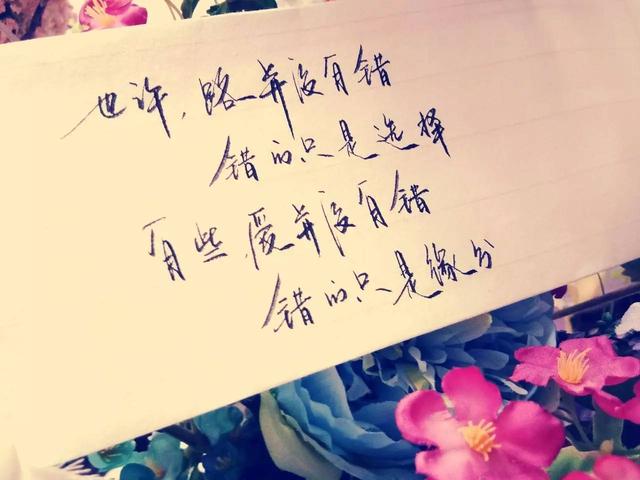 也许，路并没有错
错的只是选择
有些爱并没有错
错的只是缘分